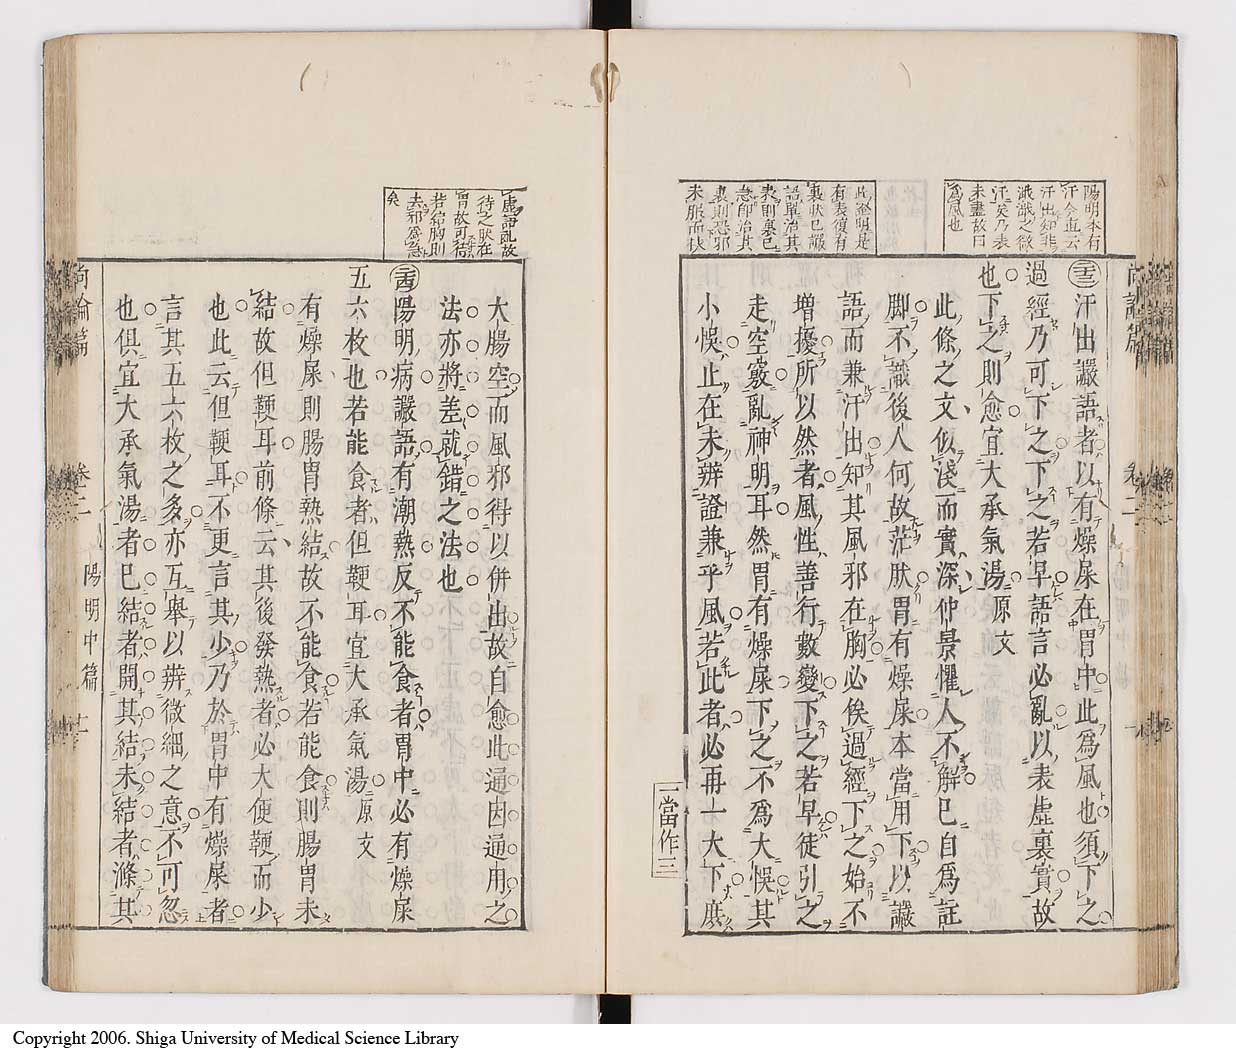 陽明本有
汗今直云
汗出知非
濈濈之微
汗矣乃表
未盡故曰
爲風也
此證明是
有表復有
裏狀已讝
語單治其
表則裏已
急卽治其
裏則恐邪
未服而抉
㊂汗出讝語者以有燥屎在胃中此爲風也須下之
過經乃可下之下之若早語言必亂以表虛裏實故
也下之則愈宜大承氣湯原文
此條之文似淺而實深仲景懼人不解已自爲註
脚不識後人何故茫肰胃有燥屎本當用下以讝
語而兼汗出知其風邪在胸必俟過經下之始不
增擾所以然者風性善行數變下之若早徒引之
走空竅亂神明耳然胃有燥屎下之不爲大悞其
小悞止在未辨證兼乎風若此者必再一大下庶
一當作三
尚論篇
卷二
虛語亂故
待之肰在
胃故可結
若結胸則
去邪爲急
矣
大腸空而風邪得以併出故自愈此通因通用之
法亦將差就錯之法也
陽明病讝語有潮熱反不能食者胃中必有燥屎
五六枚也若能食者但鞕耳宜大承氣湯原文
有燥屎則腸胃熱結故不能食若能食則腸胃未
結故但鞕耳前條云其後發熱者必大便鞕而少
也此云但鞕耳不更言其少乃於胃中有燥屎者
言其五六枚之多亦互舉以辨微細之意不可忽
也俱宜大承氣湯者已結者開其結未結者滌其
尚論篇 卷二 陽明中篇 十一
Copyright 2006. Shiga University of Medical Science Library